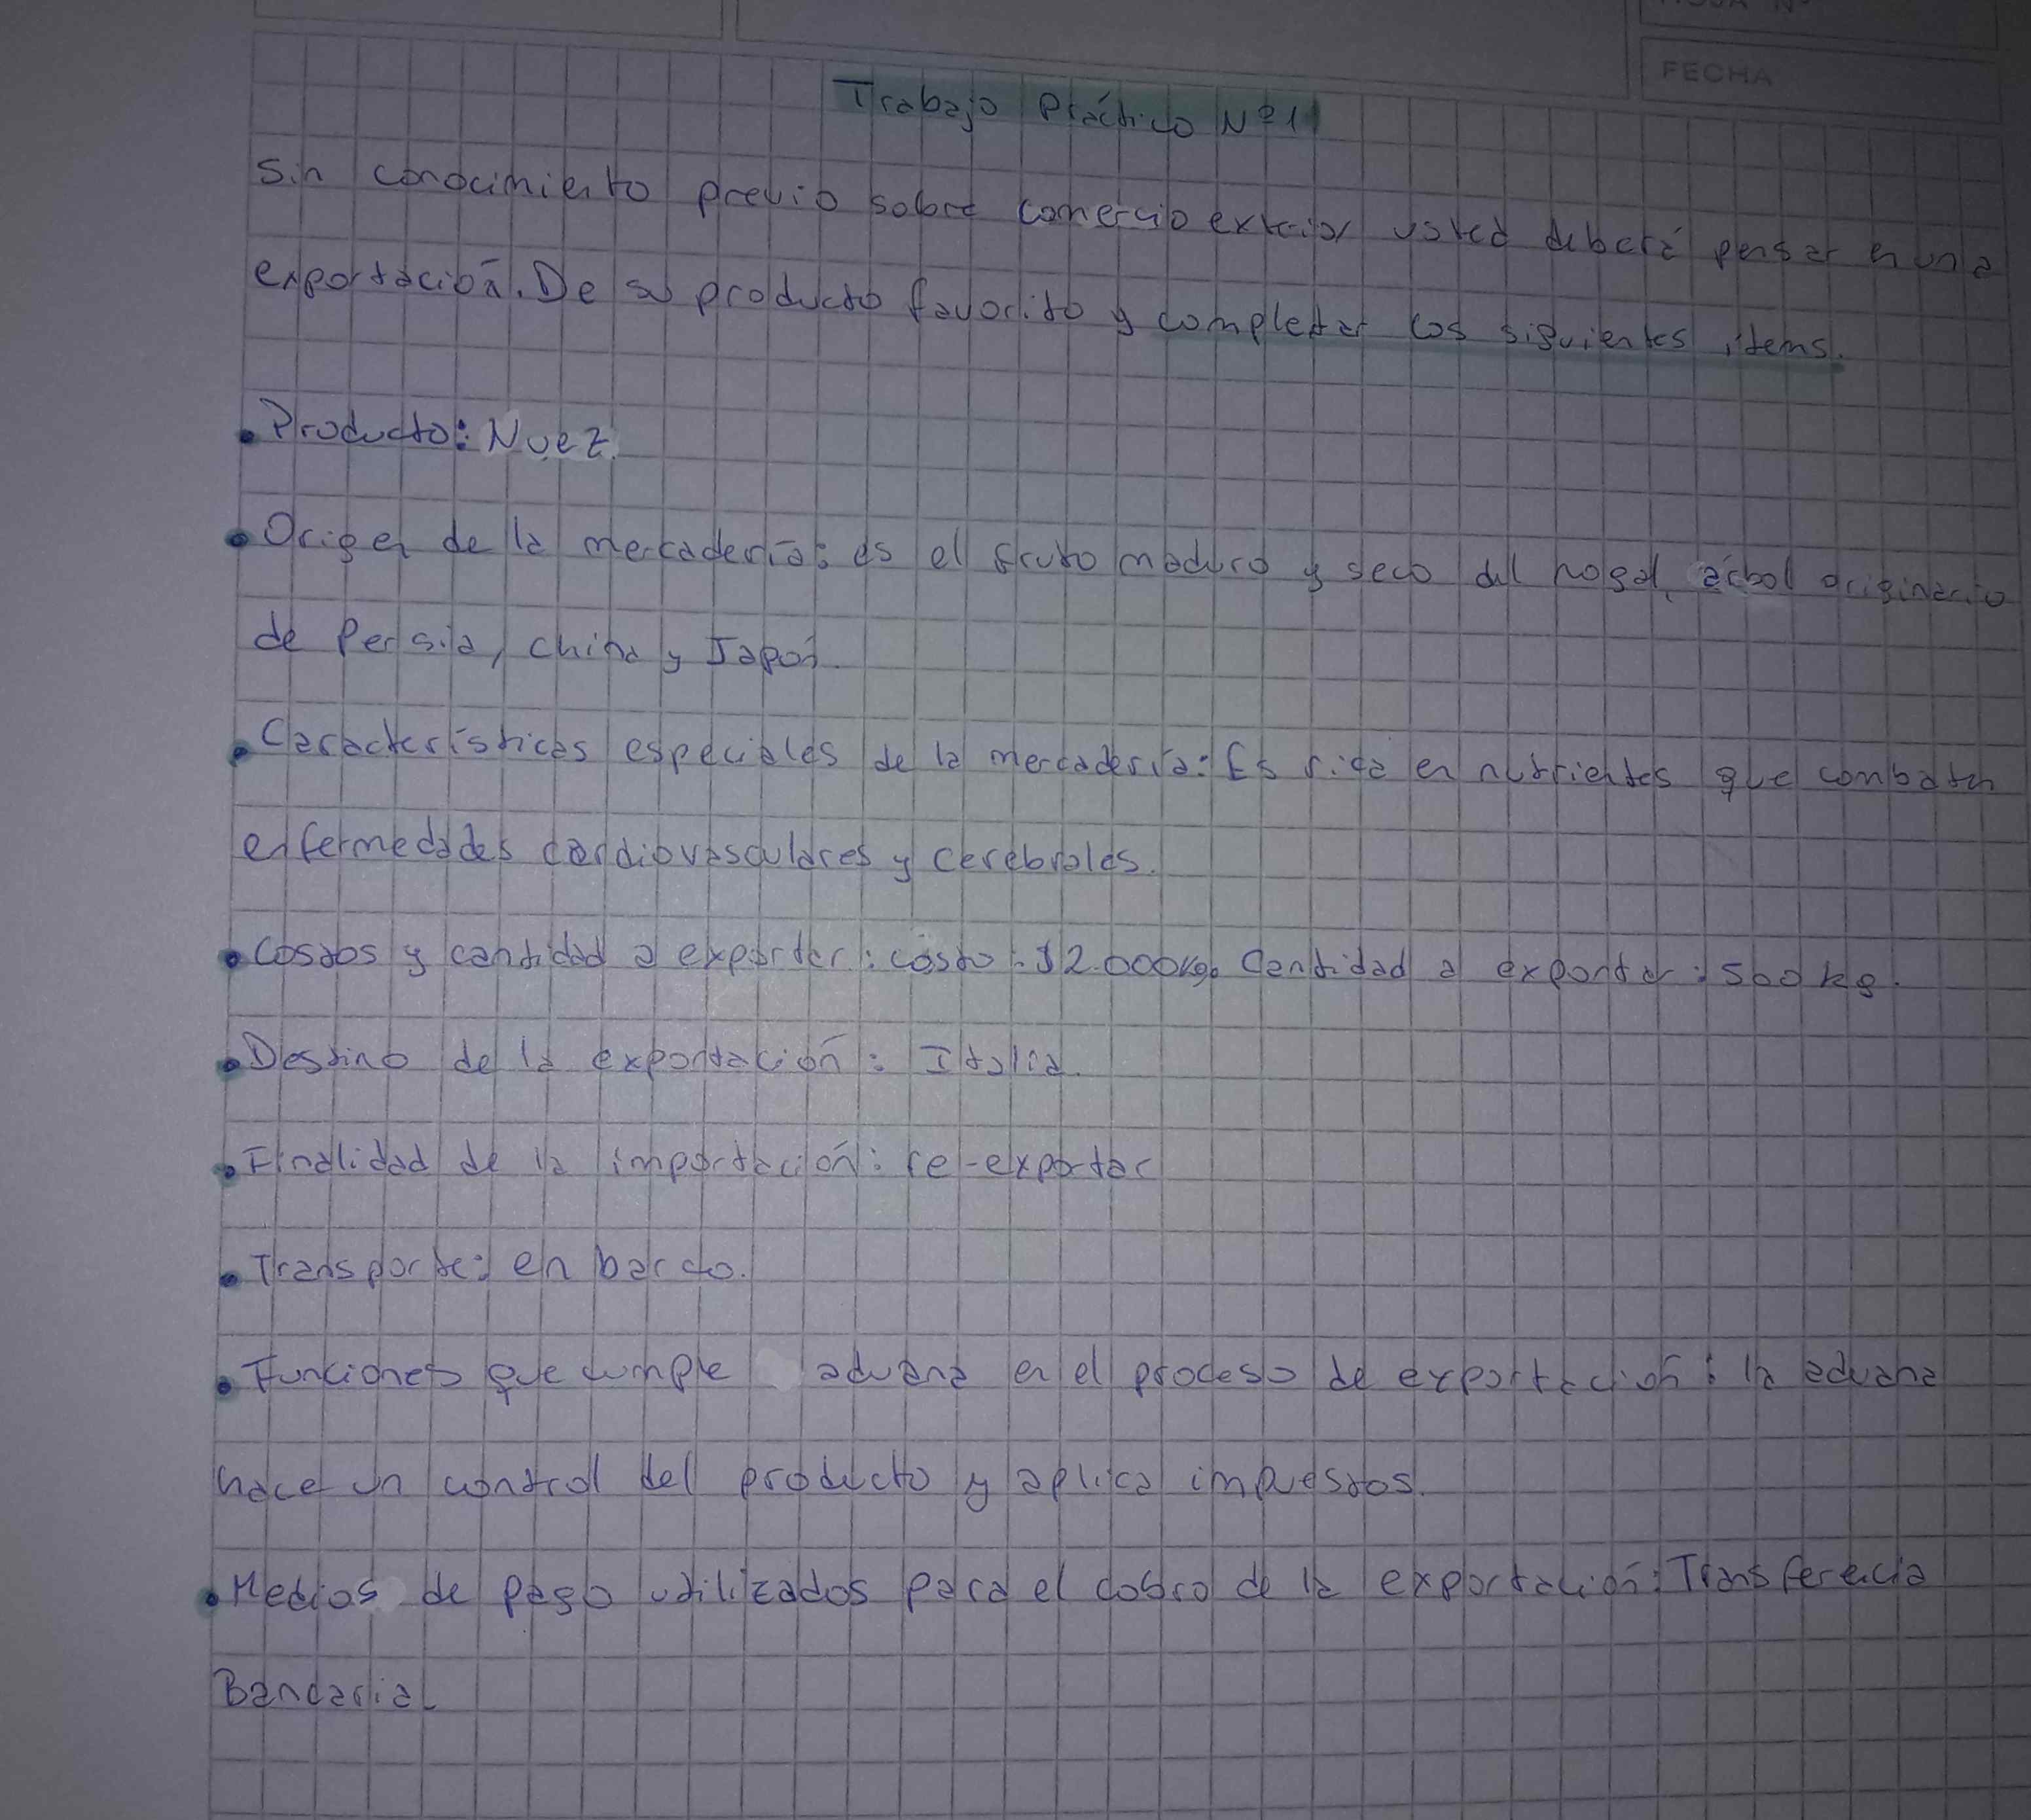 FECHA
Trabajo Práctico Nº1
Sin conocimiento previo sobre comercio exterior usted deberá pensar en una
exportación. De su producto favorito y completar los siguientes ítems.
• Producto: Nuez.
• Origen de la mercadería: es el fruto maduro y seco del nogal, árbol originario
de Persia, China y Japón.
• Características especiales de la mercadería: Es rica en nutrientes que combaten
enfermedades cardiovasculares y cerebrales.
• Costos y cantidad a exportar: costo: $2.000kg. Cantidad a exportar: 500 kg.
• Destino de la exportación: Italia.
• Finalidad de la importación: re-exportar
• Transporte: en barco.
• Funciones que cumple aduana en el proceso de exportación: la aduana
hace un control del producto y aplica impuestos.
• Medios de pago utilizados para el cobro de la exportación: Transferecia
Bancaria.